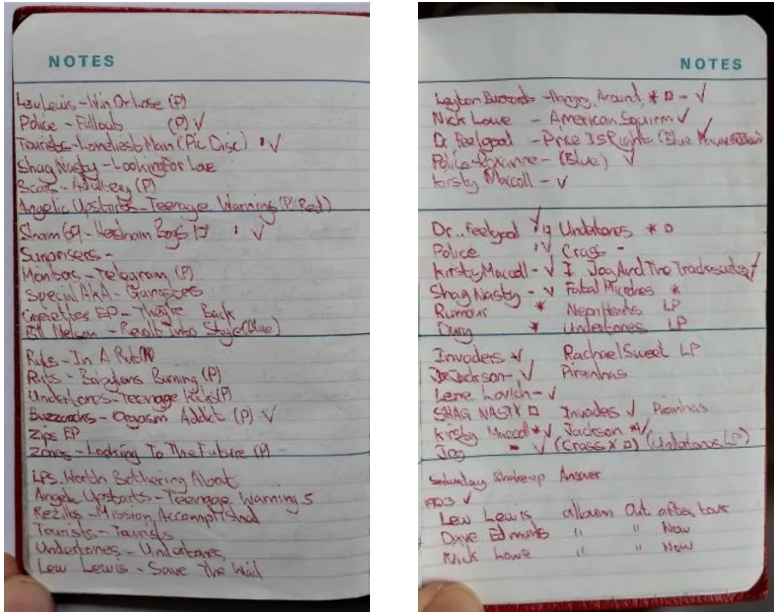 NOTES
Lew Lewis - Win Or Lose (P)
Police - Fallout (P) ✓
Tourists - Loneliest Man (Pic Disc) ' ✓
Shag Nasty - Looking For Love
Scars - Adultery (P)
Angelic Upstarts - Teenage Warning (P(Red)
Sham 69 - Hersham Boys 12 ' ✓
Surprisers -
Monitors - Telegram (P)
Special AKA - Gangsters
Cigarettes EP - Back
Bill Nelson - Revolt Into Style (Blue)
Ruts - In A Rut (P)
Ruts - Babylons Burning (P)
Undertones - Teenage Kicks (P)
Buzzcocks - Orgasm Addict (P) ✓
Zips EP
Zones - Looking To The Future (P) -
LPS Worth Bothering About
Angelic Upstarts - Teenage Warning S
Rezillos - Mission Accomplished
Tourists - Tourists
Undertones - Undertones
Lew Lewis - Save The Wail
NOTES
Leyton Buzzards - Hanging Around * □ - ✓
Nick Lowe - American Squirm ✓
Dr Feelgood - Price Is Right (Blue
Police - Roxanne - (Blue) ✓
Kirsty Maccoll - ✓
Dr. Feelgood Undertones * □
Police ' ✓ Crass -
Kirsty Macoll - ✓ I. Jog And The Tracksuits ✓
Shag Nasty - ✓ Fatal Microbes *
Rumour * Neon Hearts LP
Dury * Undertones LP
Invaders * ✓ Rachael Sweet LP
Joe Jackson - ✓ Piranhas
Lene Lovich - ✓
SHAG NASTY □ Invaders ✓ Piranhas
Kirsty Maccol * ✓ Jackson * ✓
Jog - ✓ (Crass X □) (Undertones LP)
Saturday Shakeup Answer
1923 ✓
Lew Lewis album Out after tour
Dave Edmunds " " Now
Nick Lowe " " Now